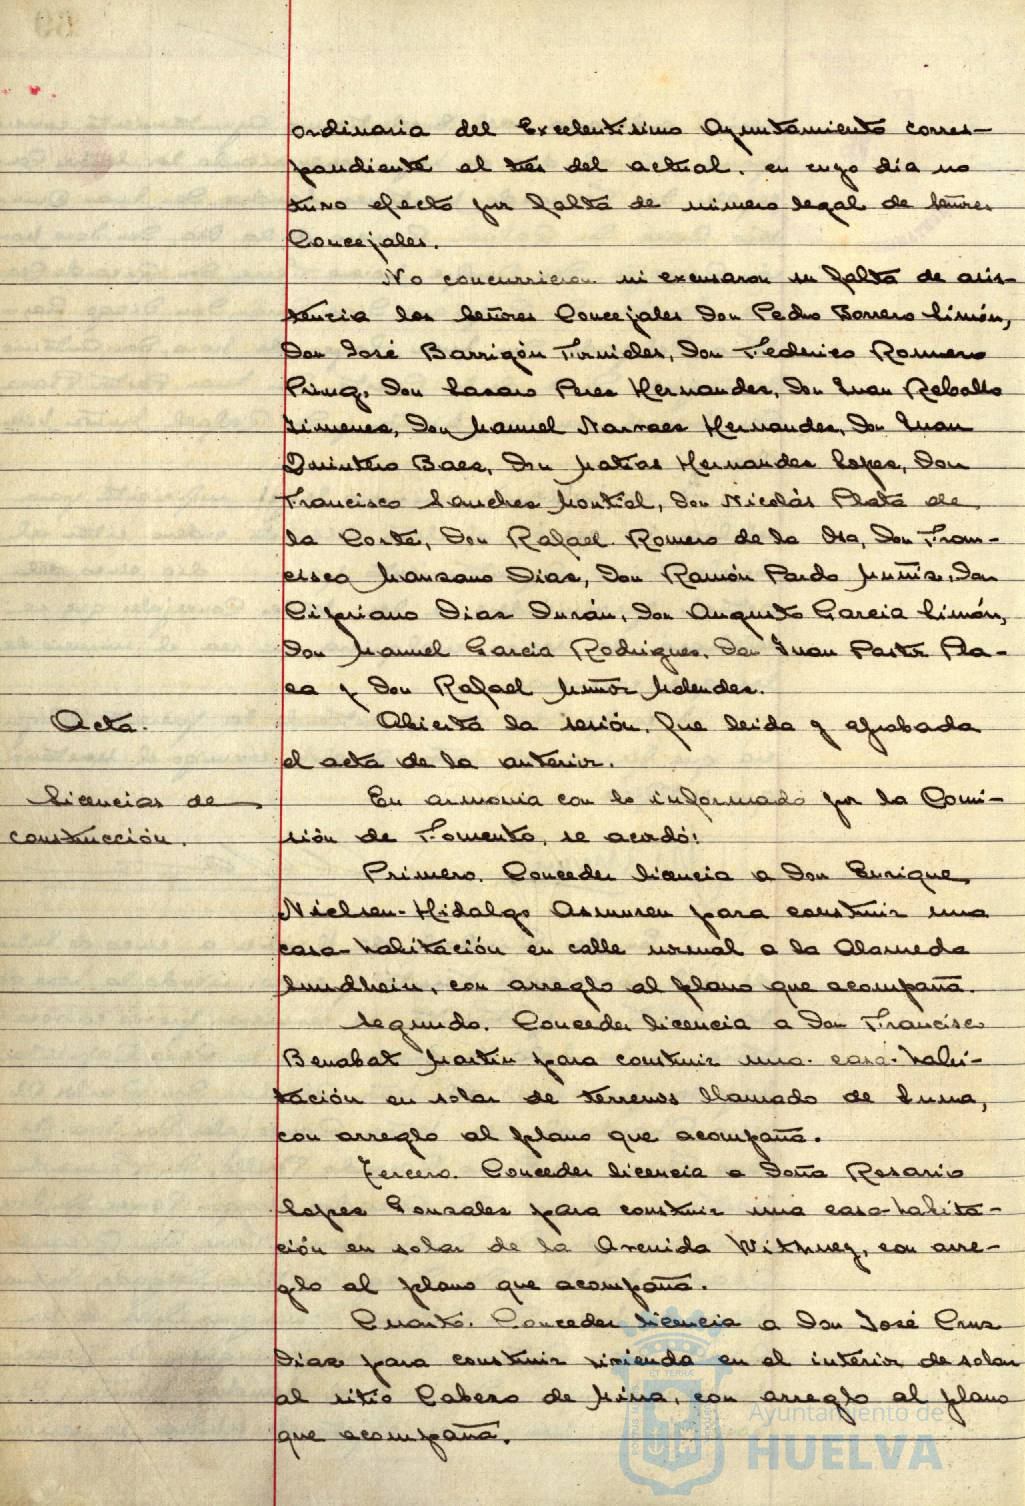 ordinaria del Excelentísimo Ayuntamiento corres-
pondiente al tres del actual, en cuyo día no
tuvo efecto por falta de número legal de Señores
Concejales.
No concurrieron ni excusaron su falta de asis-
tencia los Señores Concejales Don Pedro Borrero Limón,
Don José Barrigón Fornieles, Don Federico Romero
Don Lazaro Perez Hernandez, Don Juan Rebollo
Jimenez, Don Manuel Narvaez Hernandez, Don Juan
Quintero Baez, Don Matias Hernandez Lopez, Don
Francisco Sanchez Montiel, Don Nicolás Plata de
la Corte, Don Rafael Romero de la Osa, Don Fran-
cisco Manzano Diaz, Don Ramón Pardo Muñiz, Don
Cipriano Diaz Durán, Don Augusto Garcia Limón,
Don Manuel García Rodriguez, Don Juan Pastor Pla-
za y Don Rafael Muñoz Melendez.
Acta.
Abierta la sesión, fue leida y aprobada
el acta de la anterior.
Licencias de
construcción.
En armonia con lo informado por la Comi-
sión de Fomento, se acordó:
Primero. Conceder licencia a Don Enrique
Nielsen-Hidalgo Asmusen para construir una
casa-habitación en calle normal a la Alameda
Sundhein, con arreglo al plano que acompaña.
Segundo. Conceder licencia a Don Francisco
Benabat Martín para construir una casa-habi-
tación en solar de terrenos llamado de Luna,
con arreglo al plano que acompaña.
Tercero. Conceder licencia a Doña Rosario
Lopez Gonzalez para construir una casa-habita-
ción en solar de la Avenida con arre-
glo al plano que acompaña.
Cuarto. Conceder licencia a Don José Cruz
Diaz para construir vivienda en el interior de solar
al sitio Cabezo de Mina, con arreglo al plano
que acompaña.
Ayuntamiento de
HUELVA